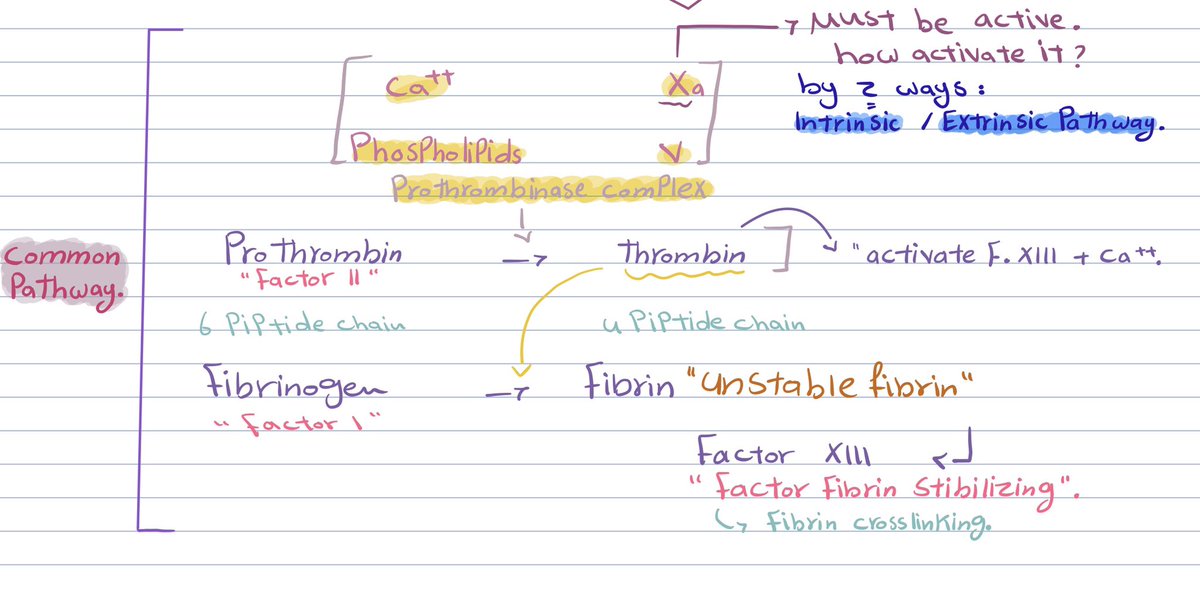 → Must be active.
how activate it?
by 2 ways:
Intrinsic / Extrinsic Pathway.
Ca++ Xa
Phospholipids V
Prothrombinase complex
Common
Pathway.
ProThrombin → Thrombin "activate F. XIII + Ca++.
"Factor II"
6 Piptide chain 4 Piptide chain
Fibrinogen → Fibrin "unstable fibrin"
"Factor I"
Factor XIII
"Factor Fibrin Stibilizing".
↳ Fibrin crosslinking.